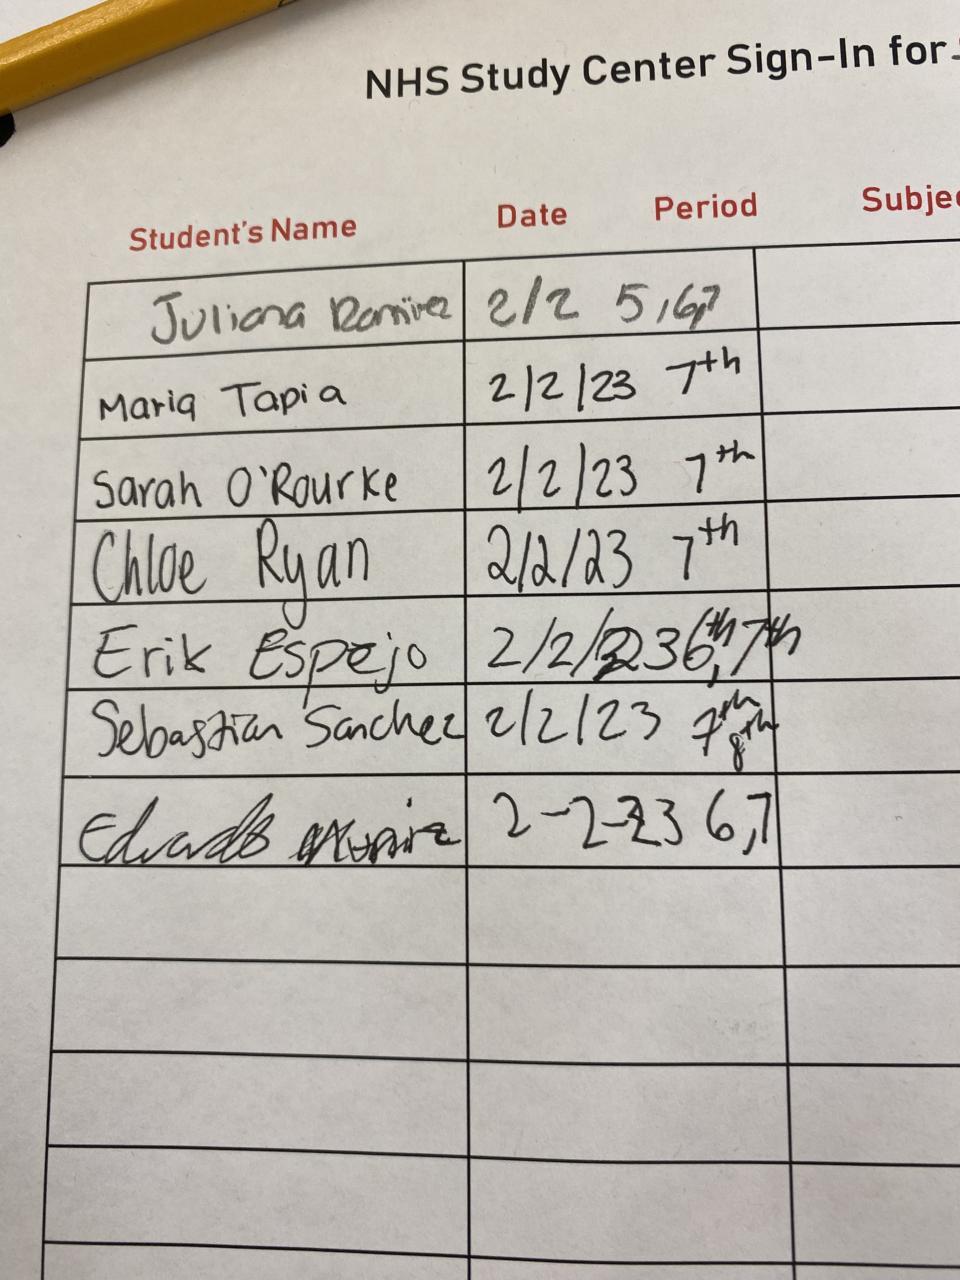 NHS Study Center Sign-In for
Student's Name Date Period Subje
Juliana Ramirez 2/2 5,6,7
Maria Tapia 2/2/23 7th
Sarah O'Rourke 2/2/23 7th
Chloe Ryan 2/2/23 7th
Erik Espejo 2/2/23 6th, 7th
Sebastian Sanchez 2/2/23 7th 8th
2-2-23 6,7